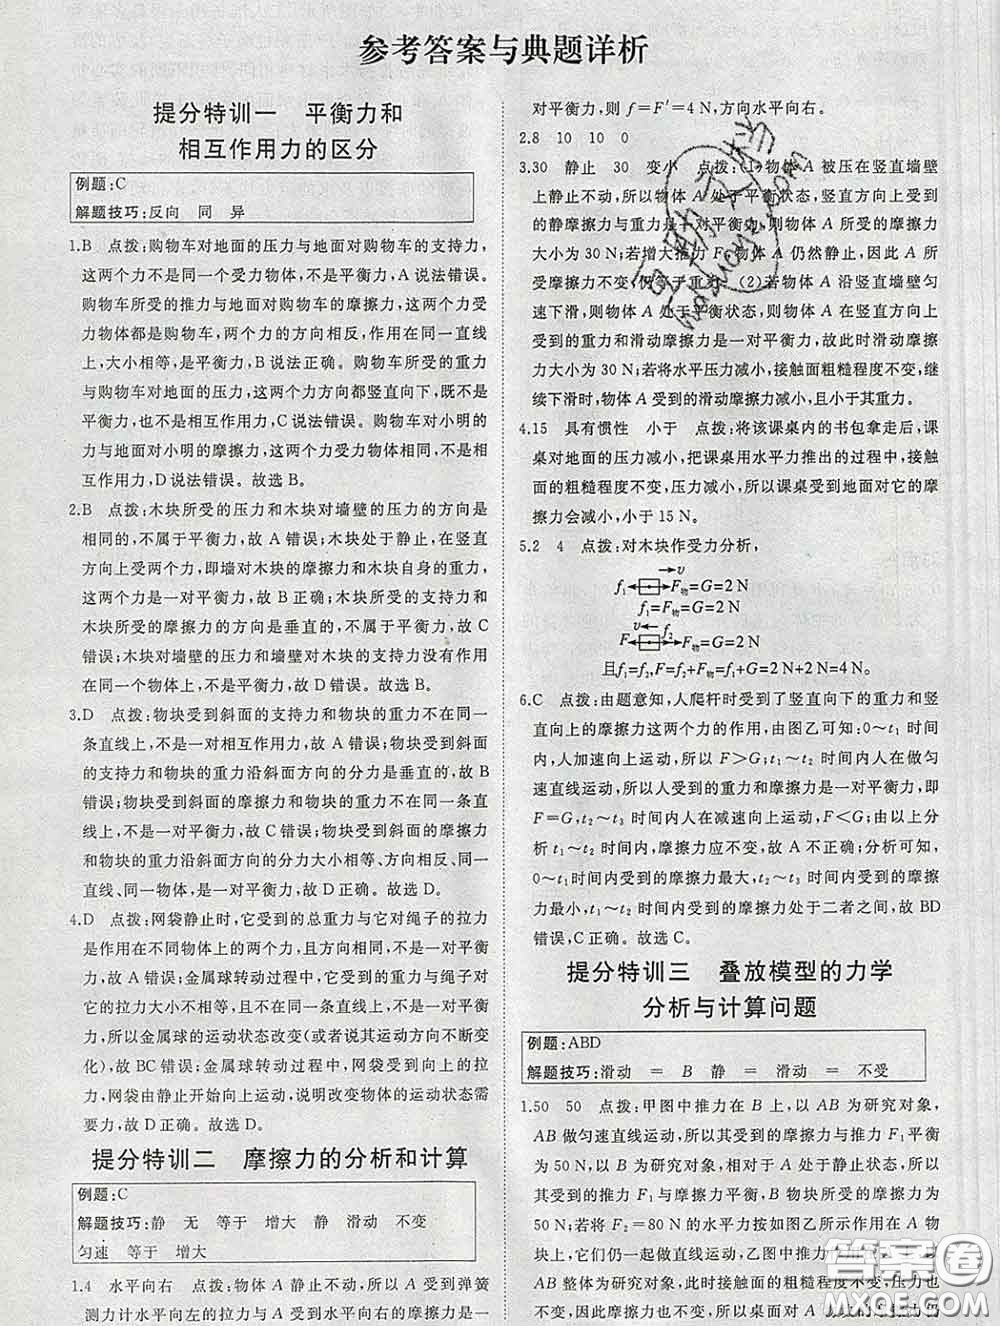 参考答案与典题详析
提分特训一　平衡力和
相互作用力的区分
例题:C
解题技巧:反向　同　异
1.B　点拨:购物车对地面的压力与地面对购物车的支持力,
这两个力不是同一个受力物体,不是平衡力,A说法错误。
购物车所受的推力与地面对购物车的摩擦力,这两个力受
力物体都是购物车,两个力的方向相反,作用在同一直线
上,大小相等,是平衡力,B说法正确。购物车所受的重力
与购物车对地面的压力,这两个力方向都竖直向下,既不是
平衡力,也不是相互作用力,C说法错误。购物车对小明的
力与小明对购物车的摩擦力,这两个力受力物体不同,是相
互作用力,D说法错误。故选B。
2.B　点拨:木块所受的压力和木块对墙壁的压力的方向是
相同的,不属于平衡力,故A错误;木块处于静止,在竖直方
向上受力平衡,即墙对木块的摩擦力和木块自身的重力,
为一对平衡力,故B正确;木块所受的支持力和木块所受的摩擦力
的方向是垂直的,不属于平衡力,故C
错误;木块对墙壁的压力和墙壁对木块的支持力没有作用
在同一个物体上,不是平衡力,故D错误。故选B。
3.D　点拨:物块受到斜面的支持力和物块的重力不在同一
条直线上,不是一对相互作用力,故A错误;物块受到斜面
的支持力和物块的重力沿斜面方向的分力是垂直的,故B
错误;物块受到斜面的摩擦力和物块的重力不在同一条直
线上,不是一对平衡力,故C错误;物块受到斜面的摩擦力
和物块的重力沿斜面方向的分力大小相等、方向相反、同一
直线、同一物体,是一对平衡力,故D正确。故选D。
4.D　点拨:网袋静止时,它受到的总重力与它对绳子的拉力
是作用在不同物体上的两个力,且方向相同,不是一对平衡
力,故A错误;金属球转动过程中,它受到的重力与绳子对
它的拉力大小不相等,不是一对相互作用力,也不是平衡
力,所以金属球的运动状态改变(或者说其运动方向不断变
化),故BC错误;金属球转动过程中,网袋受到向上的拉
力,网袋由静止开始向上运动,说明力能改变物体的运动状态
,故D正确。故选D。
提分特训二　摩擦力的分析和计算
例题:C
解题技巧:静　无　等于　增大　静　滑动　不变
匀速　等于　增大
1.4　水平向右　点拨:物体A静止不动,所以A受到弹簧
测力计水平向左的拉力与A受到水平向右的摩擦力是一
对平衡力,则f=F′=4 N,方向水平向右。
2.8　10　10　0
3.30　静止　30　变小　点拨:(1)物体A被压在竖直墙壁
上静止不动,所以物体A处于平衡状态,竖直方向上受到
的静摩擦力与重力是一对平衡力,则物体A所受的摩擦力
大小为30 N;若增大推力F,物体A仍然静止,因此A所
受摩擦力不变,仍等于重力。(2)若物体A沿竖直墙壁匀
速下滑,则物体A处于平衡状态,则物体A在竖直方向上
受到的重力和滑动摩擦力是一对平衡力,故此时滑动摩擦
力大小为30 N;若将水平压力减小,接触面粗糙程度不变,继
续下滑时,物体A受到的滑动摩擦力减小,且小于其重力。
4.15　具有惯性　小于　点拨:将该课桌内的书包拿走后,课
桌对地面的压力减小,把课桌用水平力推出的过程中,接触
面的粗糙程度不变,压力减小,所以课桌受到地面对它的摩
擦力会减小,小于15 N。
5.2　4　点拨:对木块作受力分析,
v
f₁ F物=G=2 N
f₁=G=2 N
v f₂
F F物=G=2 N
且f₁=f₂,F=f₂+F物=f₁+G=2 N+2 N=4 N。
6.C　点拨:由题意知,人爬杆时受到了竖直向下的重力和竖
直向上的摩擦力这两个力的作用,由图乙可知:0～t₁时间
内,人加速向上运动,所以F>G;t₁～t₂时间内人在做匀
速直线运动,所以人受到的重力和摩擦力是一对平衡力,即
F=G,t₂～t₃时间内人在减速向上运动,F<G;由以上分
析t₁～t₂时间内,摩擦力应不变,故A不正确;分析可知,
0～t₁时间内受到的摩擦力最大,t₂～t₃时间内受到的摩擦
力最小,t₁～t₂时间内受到的摩擦力处于二者之间,故BD
错误,C正确。故选C。
提分特训三　叠放模型的力学
分析与计算问题
例题:ABD
解题技巧:滑动　=　B　静　=　滑动　=　不受
1.50　50　点拨:甲图中推力在B上,以AB为研究对象,
AB做匀速直线运动,所以其受到的摩擦力与推力F₁平衡
为50 N,以B为研究对象,相对于A处于静止状态,所以
其受到的推力F₁与摩擦力平衡,B物块所受的摩擦力为
50 N;若将F₂=80 N的水平力按如图乙所示作用在A物
块上,它们仍一起做直线运动,乙图中推力在A上,仍以
AB整体为研究对象,此时接触面的粗糙程度不变,压力也
不变,因此摩擦力也不变,所以桌面对A的摩擦力仍
答案卷
MXQE.COM